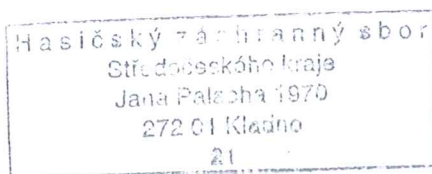 Hasičský záchranný sbor
Středočeského kraje
Jana Palacha 1970
272 01 Kladno
21